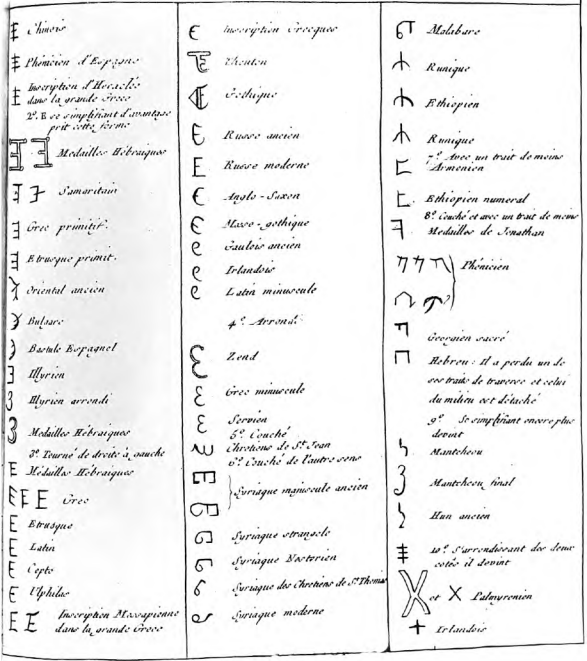 Chinois
Phénicien d'Espagne
Inscription d'Heraclée
dans la grande Grece
2.º E se simplifiant d'avantage
prit cette forme
Medailles Hébraiques
Samaritain
Grec primitif.
Etrusque primit.
Oriental ancien
Bulgare
Bastule Espagnol
Illyrien
Illyrien arrondi
Medailles Hébraiques
3.º Tourné de droite à gauche
Médailles Hébraiques
Grec
Etrusque
Latin
Cepte
Ulphilas
Inscription Messapienne
dans la grande Grece
Inscription Grecques
Theuton
Gothique
Russe ancien
Russe moderne
Anglo-Saxon
Mœso-gothique
Gaulois ancien
Irlandois
Latin minuscule
4.º Arrondi
Zend
Grec minuscule
Servien
5.º Couché
Chretiens de S.t Jean
6.º Couché de l'autre sens
Syriaque majuscule ancien
Syriaque strangele
Syriaque Nestorien
Syriaque des Chretiens de S.t Thomas
Syriaque moderne
Malabare
Runique
Ethiopien
Runique
7.º Avec un trait de moins
Armenien
Ethiopien numeral
8.º Couché et avec un trait de moins
Medailles de Jonathan
Phénicien
Georgien sacré
Hebreu: Il a perdu un de
ses traits de traverse et celui
du milieu est détaché
9.º Se simplifiant encore plus
devint
Mantcheou
Mantcheou final
Hun ancien
10.º S'arrondissant des deux
cotés il devint
et X Palmyrenien
Irlandois